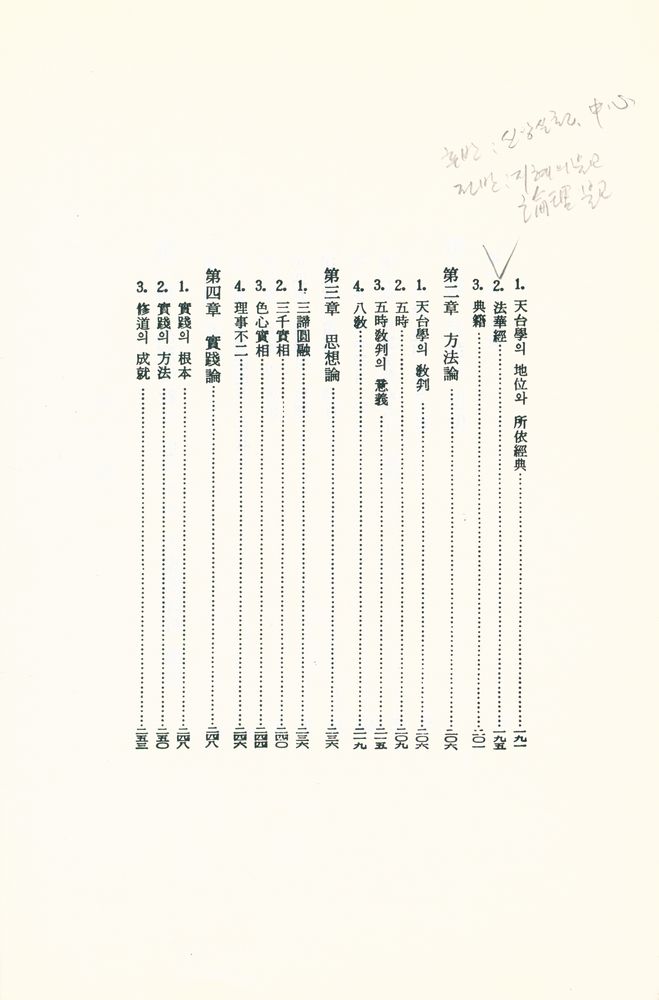 中心
후반 : 신앙실천,
전반 : 지혜의 불교
論理 불교
1. 天台學의 地位와 所依經典 ………… 一九一
2. 法華經 ………… 一九五
3. 典籍 ………… 二〇一
第二章 方法論 ………… 二〇六
1. 天台學의 敎判 ………… 二〇六
2. 五時 ………… 二〇九
3. 五時敎判의 意義 ………… 二一五
4. 八敎 ………… 二一九
第三章 思想論 ………… 二三六
1. 三諦圓融 ………… 二三六
2. 三千實相 ………… 二四〇
3. 色心實相 ………… 二四四
4. 理事不二 ………… 二四六
第四章 實踐論 ………… 二四八
1. 實踐의 根本 ………… 二四八
2. 實踐의 方法 ………… 二五〇
3. 修道의 成就 ………… 二五三